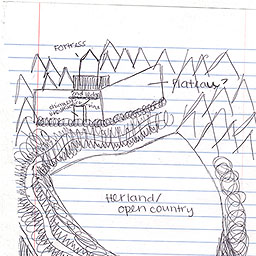 Fortress
2nd bldg
Plateau?
Herland/
open country